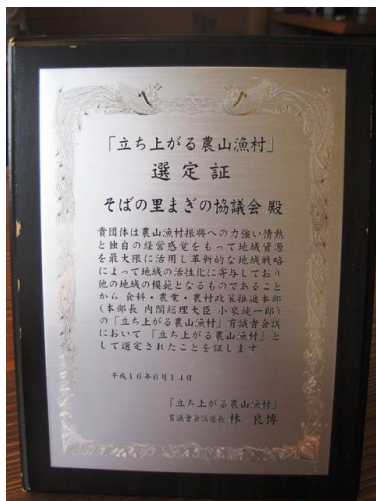 「立ち上がる農山漁村」
選定証
そばの里まぎの協議会 殿
貴団体は農山漁村振興への力強い情熱
と独自の経営感覚をもって地域資源
を最大限に活用し革新的な地域戦略
によって地域の活性化に寄与しており
他の地域の模範となるものであること
から 食料・農業・農村政策推進本部
(本部長 内閣総理大臣 小泉純一郎)
の「立ち上がる農山漁村」有識者会議
において「立ち上がる農山漁村」と
して選定されたことを証します
平成16年6月14日
「立ち上がる農山漁村」
有識者会議座長 林 良博